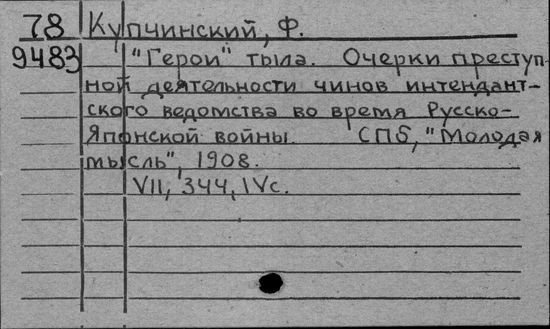 78 Купчинский, Ф.
9483 "Герои" тыла. Очерки преступ-
ной деятельности чинов интендант-
ского ведомства во время Русско-
Японской войны. СПб, "Молодая
мысль", 1908.
VII, 344, IVс.